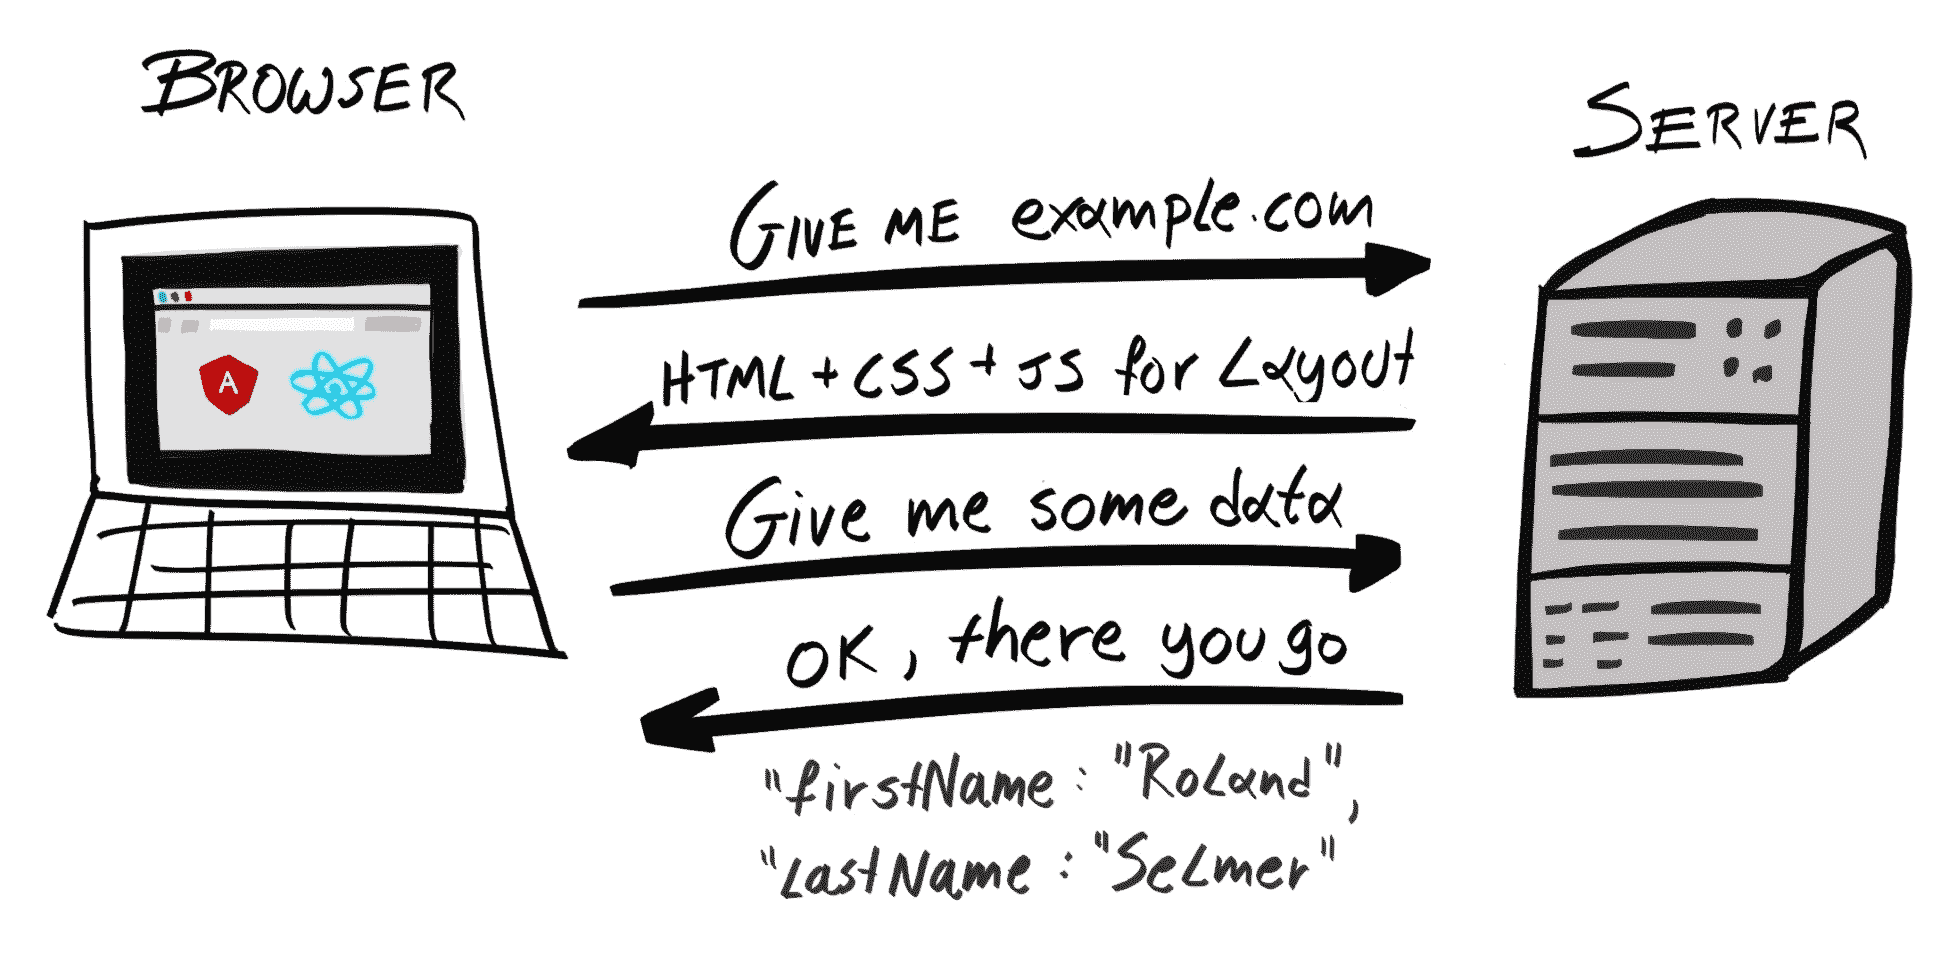 BROWSER
SERVER
GIVE ME example.com
HTML + CSS + JS for Layout
Give me some data
OK, there you go
"firstName : "Roland",
"lastName : "Selmer"
A